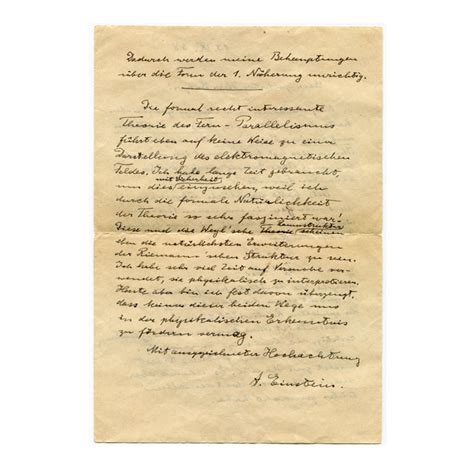 Dadurch werden meine Behauptungen
über die Form der 1. Näherung unrichtig.
Die formal recht interessante
Theorie des Fern-Parallelismus
führt eben auf keine Weise zu einer
Darstellung des elektromagnetischen
Feldes. Ich habe lange Zeit gebraucht,
mit Sicherheit
um dies einzusehen, weil ich
durch die formale Natürlichkeit
der Theorie so sehr fasziniert war!
Raumstruktur
Diese und die Weyl'sche Theorie scheinen
eben die natürlichsten Erweiterungen
der Riemann'schen Struktur zu sein.
Ich habe sehr viel Zeit auf Versuche ver-
wendet, sie physikalisch zu interpretieren.
Heute aber bin ich fest davon überzeugt,
dass keiner dieser beiden Wege uns
in der physikalischen Erkenntnis
zu fördern vermag.
Mit ausgezeichneter Hochachtung
A. Einstein.